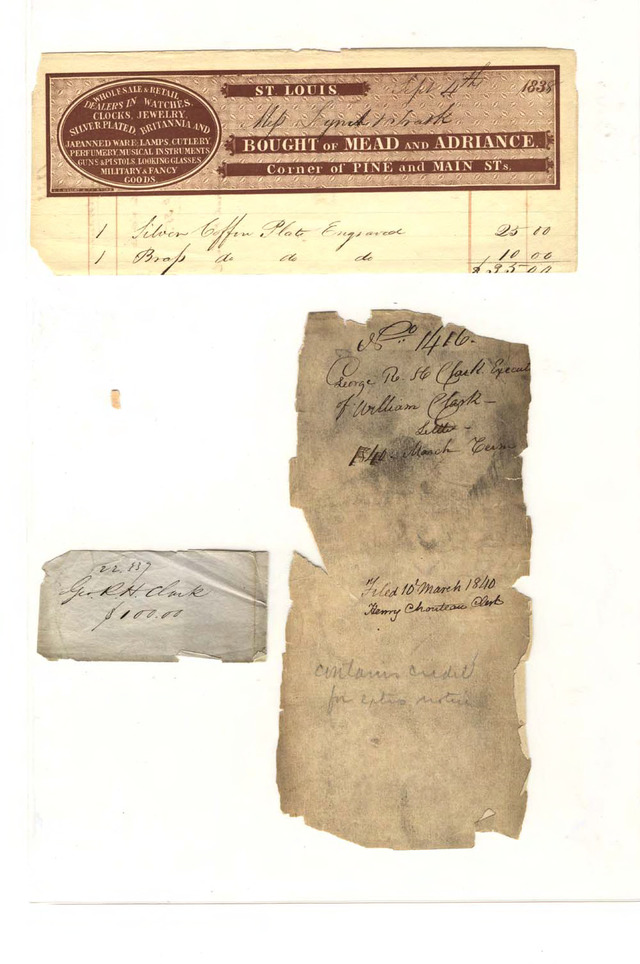 WHOLESALE & RETAIL
DEALERS IN WATCHES,
CLOCKS, JEWELRY,
SILVER PLATED, BRITANNIA AND
JAPANNED WARE; LAMPS, CUTLERY
PERFUMERY MUSICAL INSTRUMENTS
GUNS & PISTOLS, LOOKING GLASSES
MILITARY & FANCY
GOODS.
ST. LOUIS Sept 4th 1838
Mess Lynch &
BOUGHT OF MEAD AND ADRIANCE.
Corner of PINE and MAIN STs.
1 Silver Coffin Plate Engraved 25 00
1 Brass do do do 10 00
$35 00
No 1416.
George R. H Clark. Execut
of William Clark —
1840 March Term
Filed 10th March 1840
Henry Chouteau Clerk
contains credit
for extra notice
Geo. R. H. Clark
$100.00